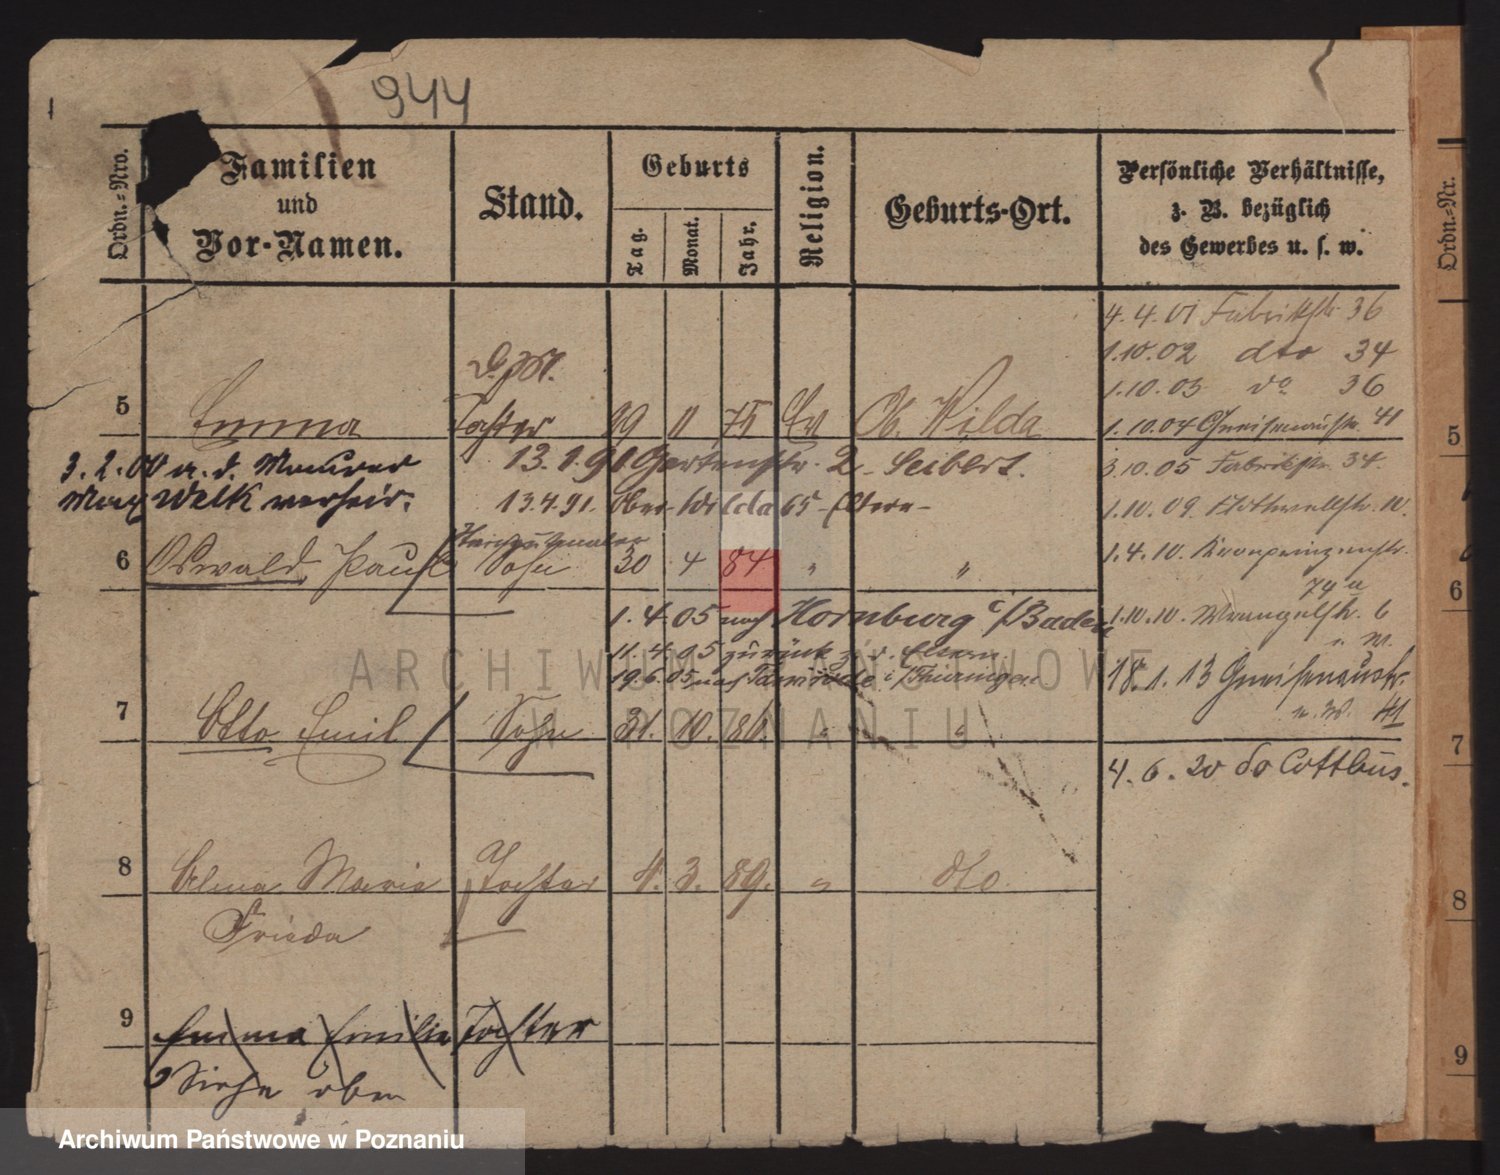 944
Ordn.-Nro.
Familien
und
Vor-Namen.
Stand.
Geburts
Tag.
Monat.
Jahr.
Religion.
Geburts-Ort.
Persönliche Verhältnisse,
z. B. bezüglich
des Gewerbes u. s. w.
Ordn.-Nr.
4.4.01 Fabrikstr. 36
1.10.02 dto 34
1.10.03 do 36
5 Emma Tochter 11 75 Ev Ob. Wilda
1.10.04 Gneisenaustr. 41
5
3.2.00 a. d. Maurer 13.1.91 Gartenstr. 2 Seibert.
3.10.05 Fabrikstr. 34.
Max Welk verheir. 13.4.91. Ober-Wilda 65 Eltern
1.10.09. str. 10.
1.4.10. Kronprinzenstr.
74 a
6 Oswald, Paul Sohn 30 4 84 " "
6
1.4.05 nach Hornburg i/Baden
1.10.10. Wrangelstr. 6
11.4.05 zurück z. d. Eltern.
19.6.05 nach i/Thüringen
18.1.13 Gneisenaustr.
41
7 Otto Emil Sohn 31. 10. 86. " "
7
4.6.20 Cottbus.
8 Alma Marie Tochter 4. 3. 89. " dto.
Frieda
8
9 Emma Emilie Tochter
Siehe oben
9
ARCHIWUM PAŃSTWOWE
W POZNANIU
Archiwum Państwowe w Poznaniu